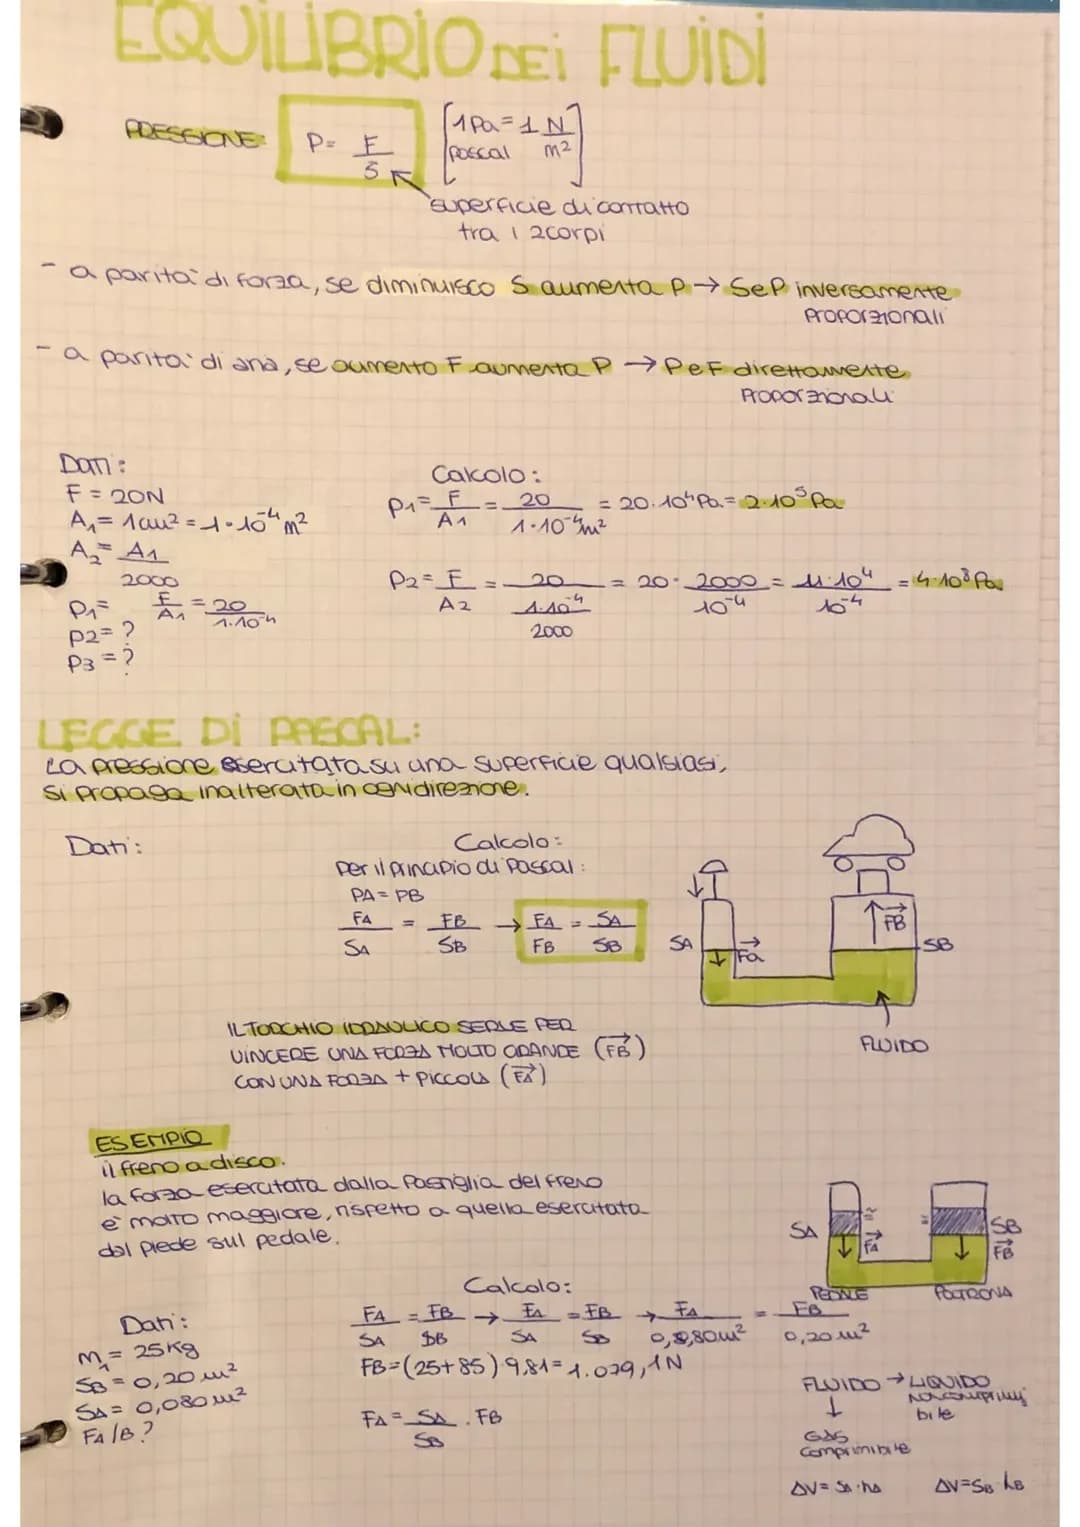 EQUILIBRIO DEI FLUIDI
PRESSIONE: P= F/S [1Pa=1 N/m² pascal]
superficie di contatto
tra i 2 corpi
- a parità di forza, se diminuisco S aumenta P → S e P inversamente
proporzionali
- a parità di area, se aumento F aumenta P → P e F direttamente
proporzionali
Dati:
F = 20N
A₁= 1cm² = 1·10⁻⁴ m²
A₂= A₁/2000
P₁= F/A₁ = 20/1·10⁻⁴
P2= ?
P3 = ?
Calcolo:
P₁= F/A₁ = 20/1·10⁻⁴m² = 20·10⁴Pa = 2·10⁵ Pa
P₂= F/A2 = 20/(1·10⁻⁴/2000) = 20· 2000/10⁻⁴ = 4·10⁴/10⁻⁴ = 4·10⁸ Pa
LEGGE DI PASCAL:
La pressione esercitata su una superficie qualsiasi,
si propaga inalterata in ogni direzione.
Dati:
Calcolo:
per il principio di Pascal:
PA = PB
FA/SA = FB/SB → FA/FB = SA/SB
SA
Fa
FB
SB
FLUIDO
IL TORCHIO IDRAULICO SERVE PER
VINCERE UNA FORZA MOLTO GRANDE (FB)
CON UNA FORZA + PICCOLA (FA)
ESEMPIO
il freno a disco.
la forza esercitata dalla pastiglia del freno
è molto maggiore, rispetto a quella esercitata
dal piede sul pedale.
SA
FA
SB
FB
PEDALE
POLTRONA
Dati:
m₁ = 25Kg
SB = 0,20 m²
SA = 0,080 m²
FA/B?
Calcolo:
FA/SA = FB/SB → FA/SA = FB/SB → FA/0,080m² = FB/0,20 m²
FB=(25+85)·9,81=1.079,1N
FA = SA/SB · FB
FLUIDO → LIQUIDO
↓
GAS
comprimibile
ΔV = SA·hA
ΔV=SB·hB